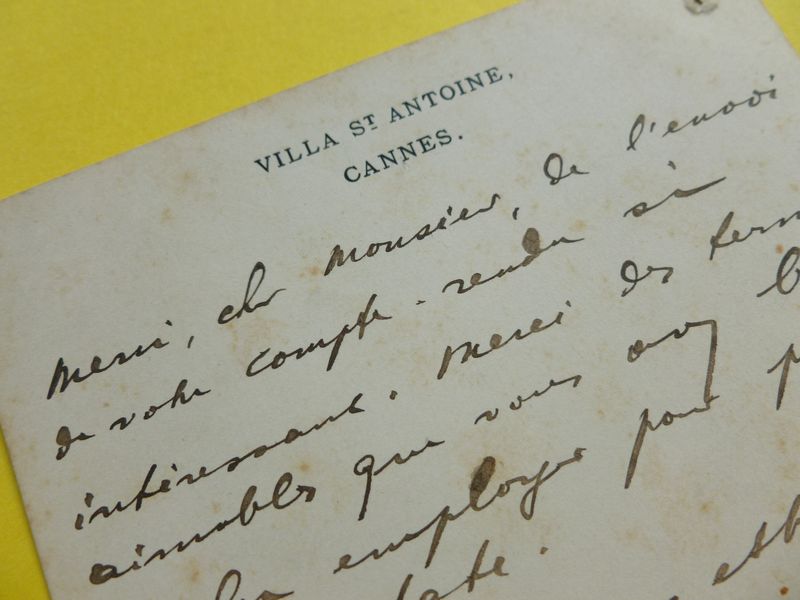 VILLA ST ANTOINE,
CANNES.
Merci, cher Monsieur, de l'envoi
de votre compte-rendu si
intéressant. Merci des term
aimables que vous avez b
employé pour p